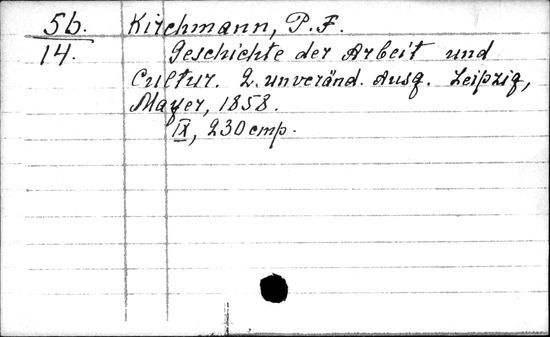 56.
14.
Kirchmann, P. F.
Geschichte der Arbeit und
Cultur. 2. unveränd. Ausg. Leipzig,
Mayer, 1858.
IX, 230 cmp.